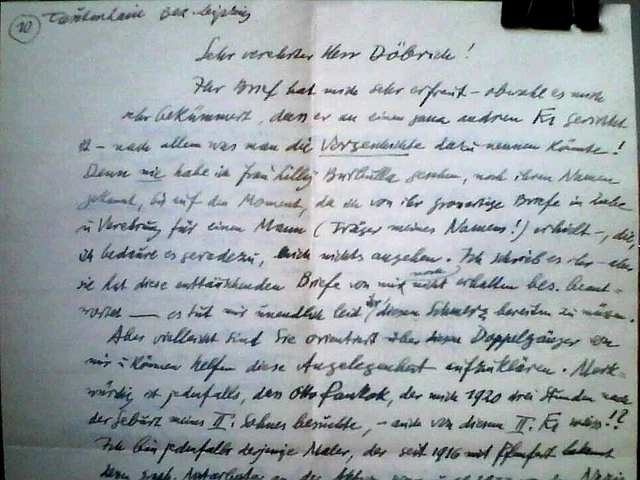 10 Tautenhain Bez. Leipzig
Sehr verehrter Herr Döbrich!
Ihr Brief hat mich sehr erfreut – obwohl es mich
sehr bekümmert, dass er an einen ganz andren F1 gerichtet
ist – nach allem was man die Vorgeschichte dazu nennen könnte!
Denn nie habe ich Frau Lilly gesehen, noch ihren Namen
gekannt, bis auf den Moment, da ich von ihr grossartige Briefe in Liebe
u Verehrung für einen Mann (Träger meines Namens!) erhielt –, die,
ich bedaure es geradezu, mich nichts angehen. Ich schrieb es ihr – aber
sie hat diese enttäuschenden Briefe von mir noch nicht erhalten bez. beant-
wortet — es tut mir unendlich leid ihr diesen Schmerz bereiten zu müssen.
Aber vielleicht sind Sie orientiert über Doppelgänger von
mir u können helfen diese Angelegenheit aufzuklären. Merk-
würdig ist jedenfalls, dass Otto Pankok, der mich 1920 drei Stunden nach
der Geburt meines II. Sohnes besuchte, – auch von diesem II. F1 weiss!!?
Ich bin jedenfalls derjenige Maler, der seit 1916 mit bekannt